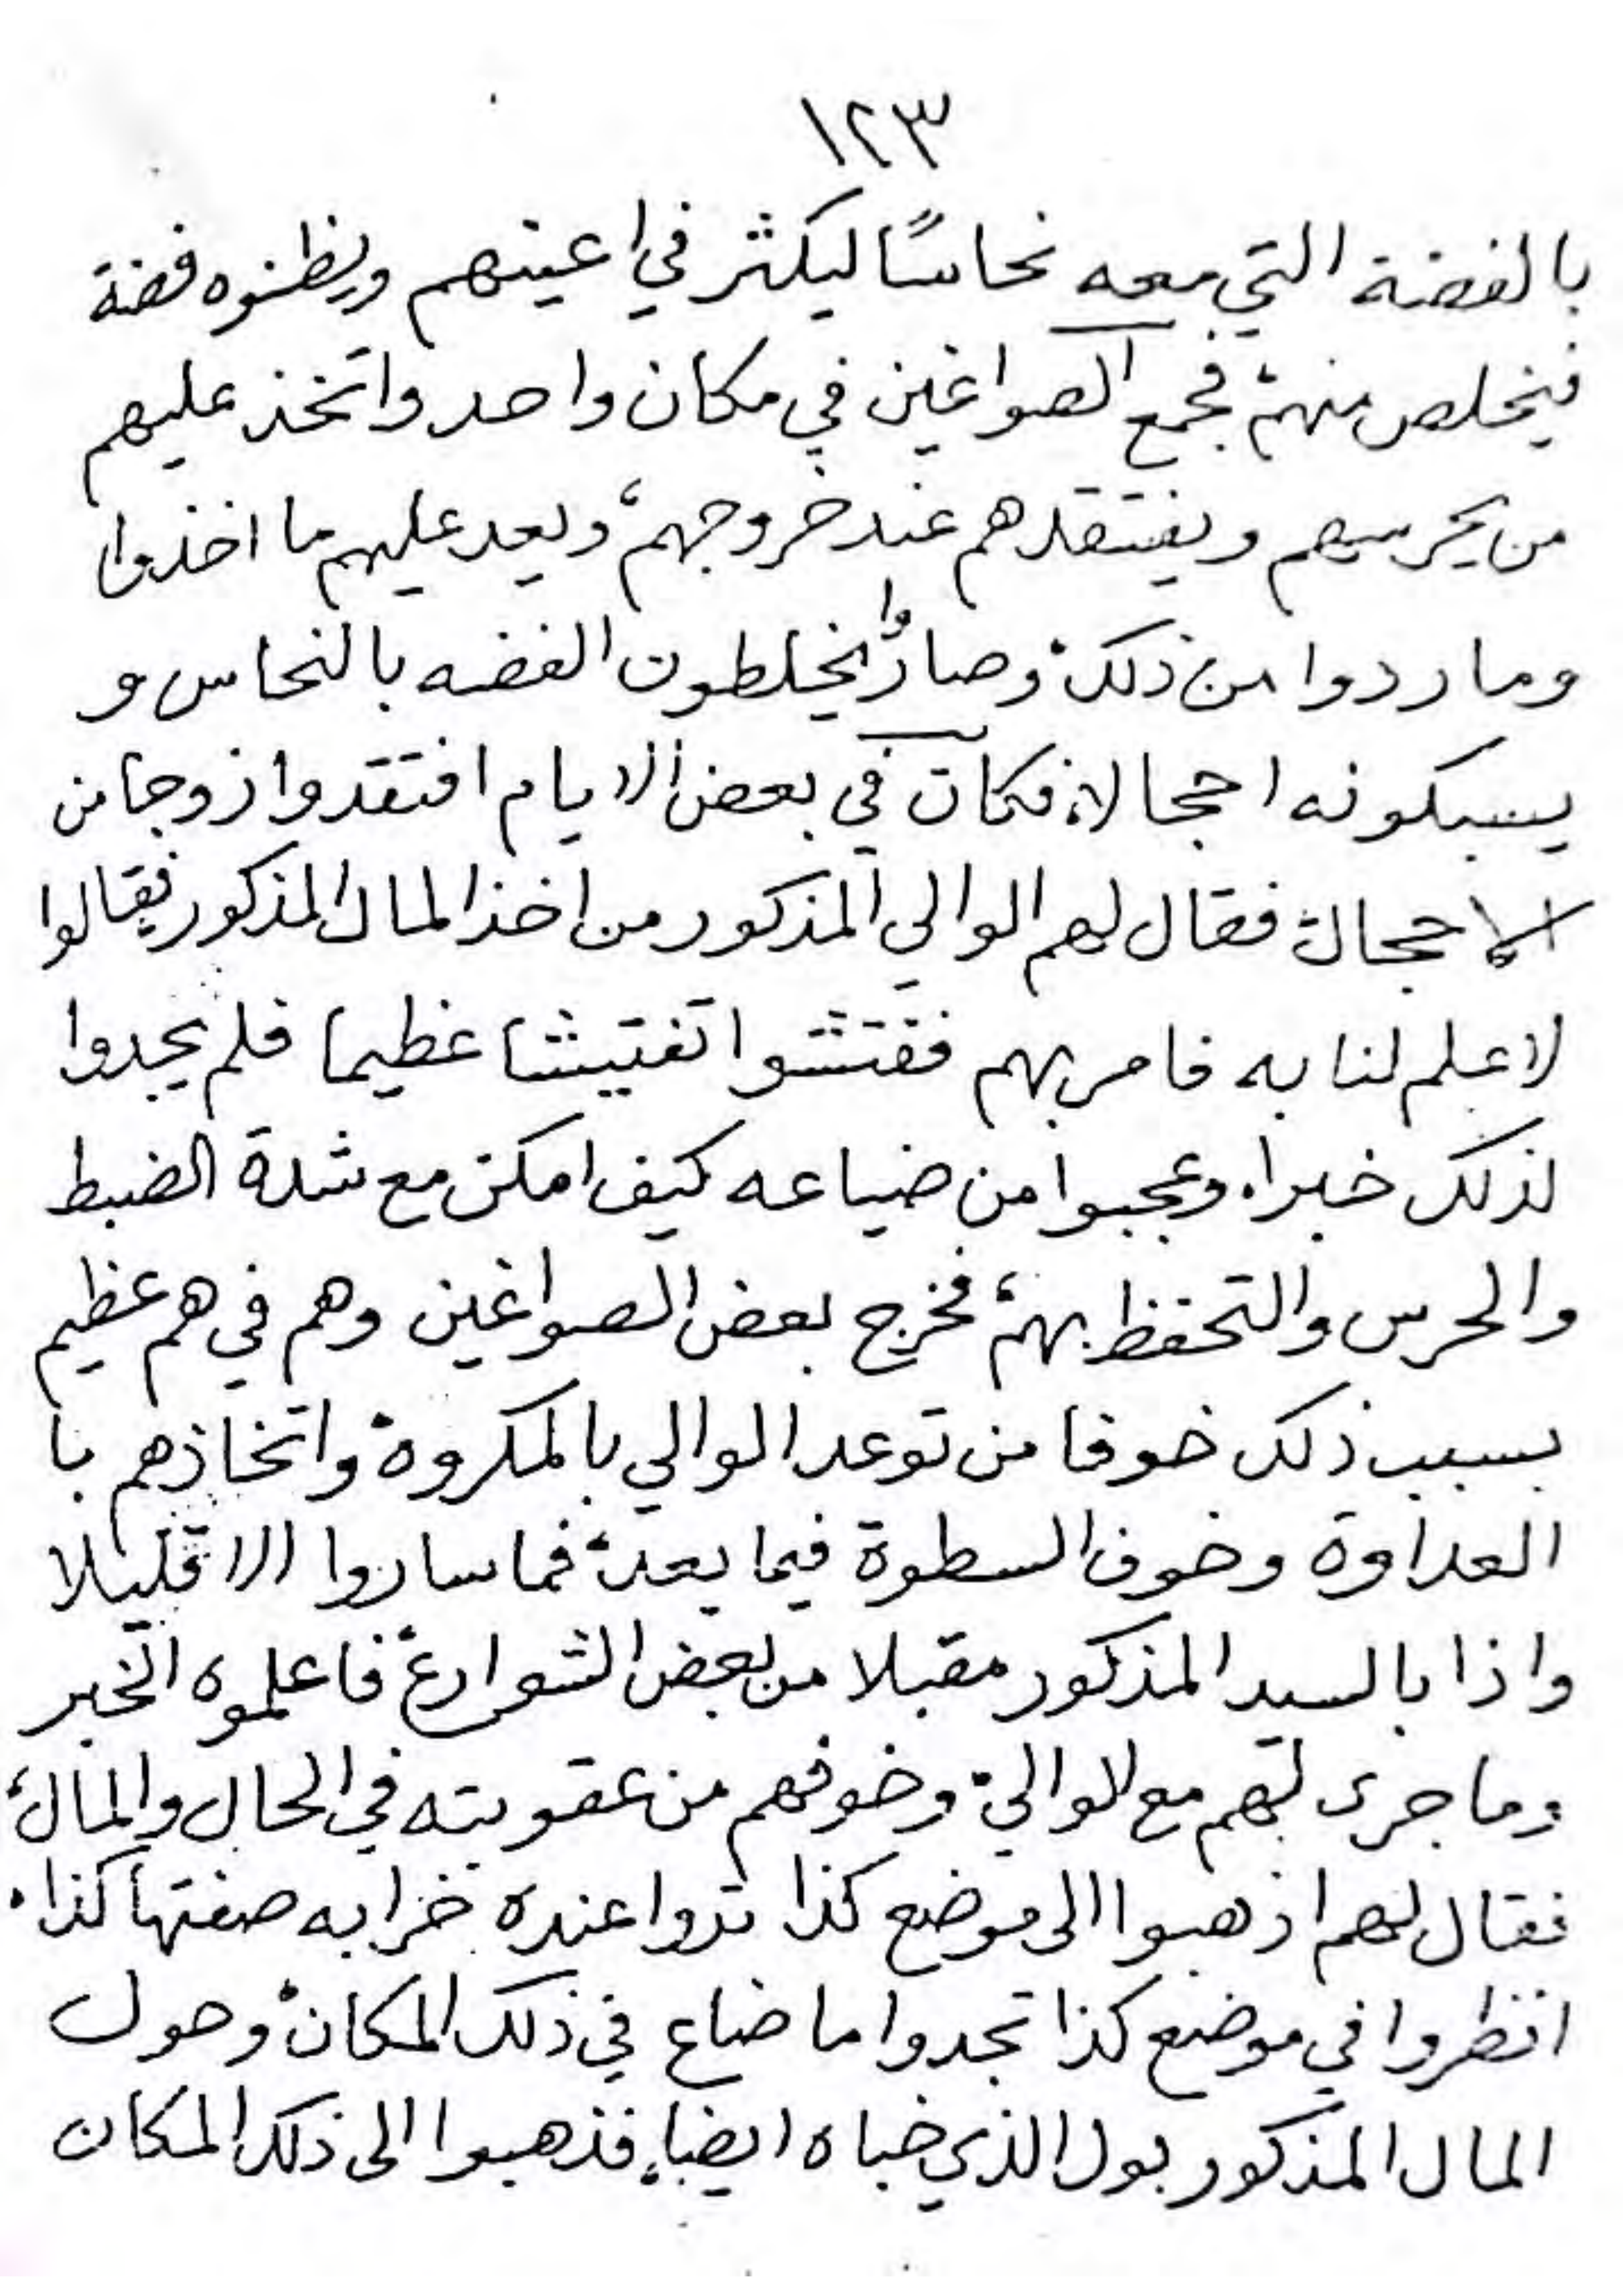 ١٢٣
بالفضة التي معه نحاسًا ليكثر في اعينهم ويظنوه فضة
فيخلص منهم، فجمع الصواغين في مكان واحد واتخذ عليهم
من يحرسهم ويفتقدهم عند خروجهم، ويعد عليهم ما اخذوا
وما ردوا من ذلك، وصاروا يخلطون الفضه بالنحاس و
يسبكونه احجالا، فكان في بعض الايام افتقدوا زوجا من
الاحجال، فقال لهم الوالي المذكور من اخذ المال المذكور فقالوا
لا علم لنا به فامر بهم ففتشوا تفتيشا عظيما فلم يجدوا
لذلك خبرا، وعجبوا من ضياعه كيف امكن مع شدة الضبط
والحرس والتحفظ بهم، فخرج بعض الصواغين وهم في هم عظيم
بسبب ذلك خوفا من توعد الوالي بالمكروه، واتخاذهم با
العداوة وخوف السطوة فيما بعد، فما ساروا الا قليلا
واذا بالسيد المذكور مقبلا من بعض الشوارع، فاعلموه الخبر
وما جرى لهم مع الوالي، وخوفهم من عقوبته في الحال والمال،
فقال لهم اذهبوا الى موضع كذا تروا عنده خرابه صفتها كذا،
انظروا في موضع كذا تجدوا ما ضاع في ذلك المكان، وحول
المال المذكور بول الذي خباه ايضا، فذهبوا الى ذلك المكان